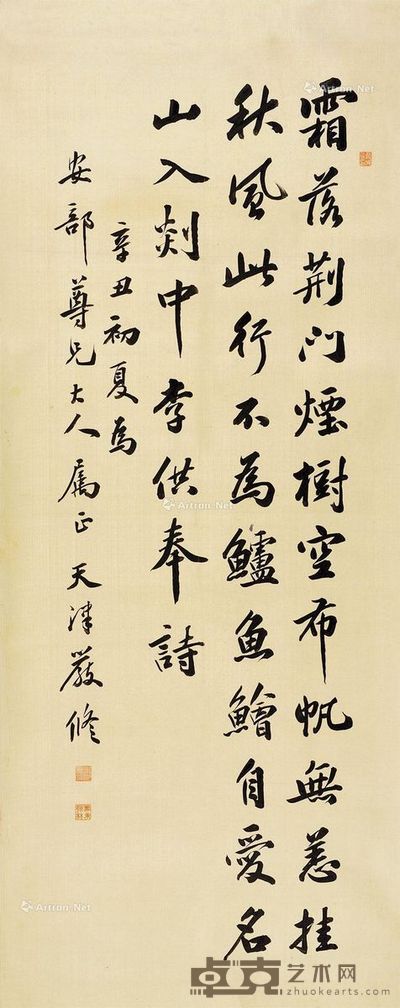 霜落荆门煙樹空布帆無恙挂
秋風此行不為鱸魚鱠自愛名
山入剡中李供奉詩
辛丑初夏為
安部尊兄大人属正天津嚴修
Artron.Net
卓克艺术网
zhuokearts.com